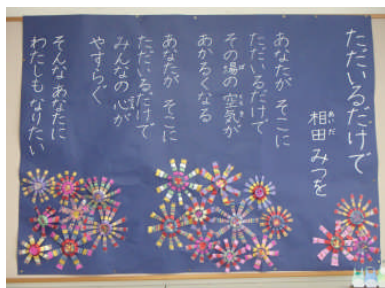 ただいるだけで
相田みつを
あいだ
あなたが そこに
ただいるだけで
その場の空気が
ば くうき
あかるくなる
あなたが そこに
ただいるだけで
みんなの心が
こころ
やすらぐ
そんな あなたに
わたしも なりたい